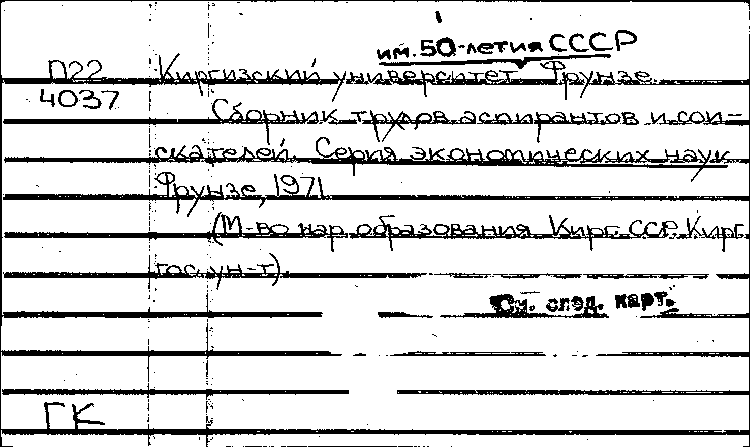 им. 50-летия СССР
П22 Киргизский университет Фрунзе.
4037 Сборник трудов аспирантов и сои-
скателей. Серия экономических наук
Фрунзе, 1971
(М-во нар. образования Кирг. ССР. Кирг.
гос. ун-т).
См. след. карт.
ГК